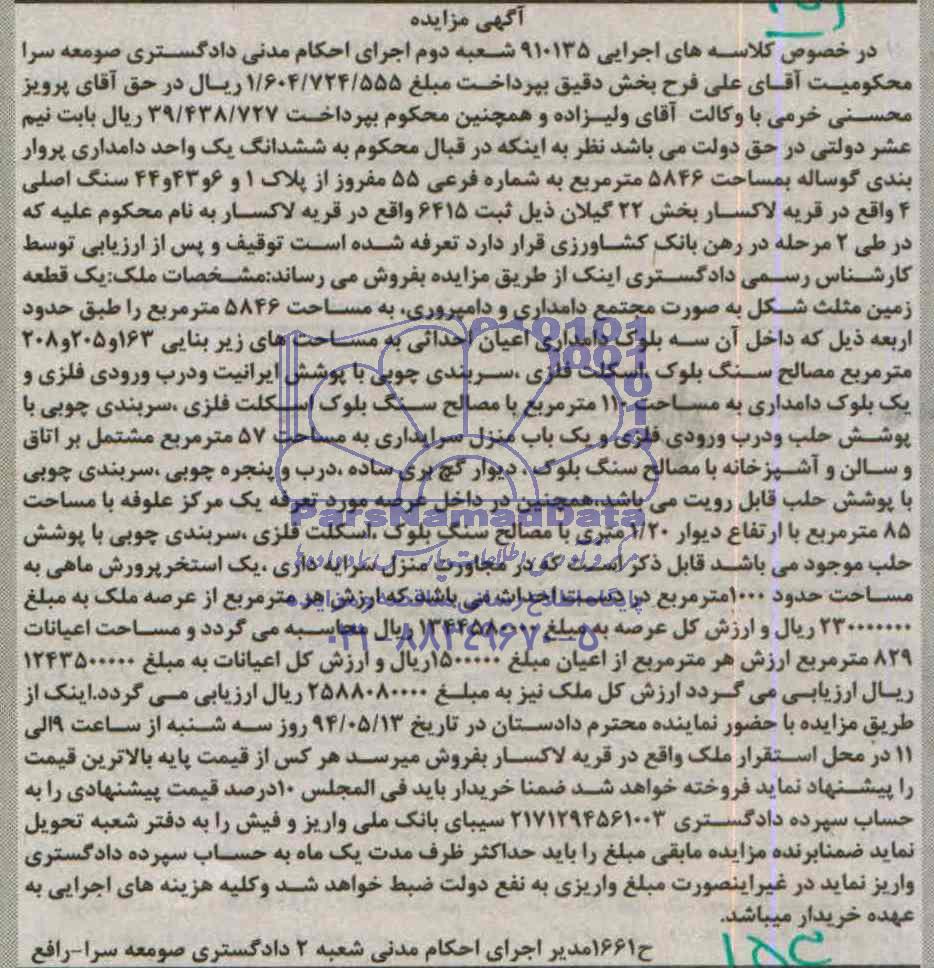 آگهی مزایده
در خصوص کلاسه های اجرایی ۹۱۰۱۳۵ شعبه دوم اجرای احکام مدنی دادگستری صومعه سرا
محکومیت آقای علی فرح بخش دقیق بپرداخت مبلغ ۱/۶۰۴/۷۲۴/۵۵۵ ریال در حق آقای پرویز
محسنی خرمی با وکالت آقای ولیزاده و همچنین محکوم بپرداخت ۳۹/۴۳۸/۷۲۷ ریال بابت نیم
عشر دولتی در حق دولت می باشد نظر به اینکه در قبال محکوم به ششدانگ یک واحد دامداری پروار
بندی گوساله بمساحت ۵۸۴۶ مترمربع به شماره فرعی ۵۵ مفروز از پلاک ۱ و ۶و۴۳و۴۴ سنگ اصلی
۴ واقع در قریه لاکسار بخش ۲۲ گیلان ذیل ثبت ۶۴۱۵ واقع در قریه لاکسار به نام محکوم علیه که
در طی ۲ مرحله در رهن بانک کشاورزی قرار دارد تعرفه شده است توقیف و پس از ارزیابی توسط
کارشناس رسمی دادگستری اینک از طریق مزایده بفروش می رساند:مشخصات ملک:یک قطعه
زمین مثلث شکل به صورت مجتمع دامداری و دامپروری، به مساحت ۵۸۴۶ مترمربع را طبق حدود
اربعه ذیل که داخل آن سه بلوک دامداری اعیان احداثی به مساحت های زیر بنایی ۱۶۳و۲۰۵و۲۰۸
مترمربع مصالح سنگ بلوک ،اسکلت فلزی ،سربندی چوبی با پوشش ایرانیت ودرب ورودی فلزی و
یک بلوک دامداری به مساحت ۱۱۰ مترمربع با مصالح سنگ بلوک اسکلت فلزی ،سربندی چوبی با
پوشش حلب ودرب ورودی فلزی و یک باب منزل سرایداری به مساحت ۵۷ مترمربع مشتمل بر اتاق
و سالن و آشپزخانه با مصالح سنگ بلوک ، دیوار گچ بری ساده ،درب و پنجره چوبی ،سربندی چوبی
با پوشش حلب قابل رویت می باشد،همچنین در داخل عرصه مورد تعرفه یک مرکز علوفه با مساحت
۸۵ مترمربع با ارتفاع دیوار ۱/۲۰ متری با مصالح سنگ بلوک ،اسکلت فلزی ،سربندی چوبی با پوشش
حلب موجود می باشد قابل ذکر است که در مجاورت منزل سرایه داری ،یک استخرپرورش ماهی به
مساحت حدود ۱۰۰۰مترمربع در دست احداث می باشد که ارزش هر مترمربع از عرصه ملک به مبلغ
۲۳۰۰۰۰۰۰ ریال و ارزش کل عرصه به مبلغ ۱۳۴۴۵۸۰۰۰۰ ریال محاسبه می گردد و مساحت اعیانات
۸۲۹ مترمربع ارزش هر مترمربع از اعیان مبلغ ۱۵۰۰۰۰۰ریال و ارزش کل اعیانات به مبلغ ۱۲۴۳۵۰۰۰۰۰
ریال ارزیابی می گردد ارزش کل ملک نیز به مبلغ ۲۵۸۸۰۸۰۰۰۰ ریال ارزیابی می گردد.اینک از
طریق مزایده با حضور نماینده محترم دادستان در تاریخ ۹۴/۰۵/۱۳ روز سه شنبه از ساعت ۹الی
۱۱ در محل استقرار ملک واقع در قریه لاکسار بفروش میرسد هر کس از قیمت پایه بالاترین قیمت
را پیشنهاد نماید فروخته خواهد شد ضمنا خریدار باید فی المجلس ۱۰درصد قیمت پیشنهادی را به
حساب سپرده دادگستری ۲۱۷۱۲۹۴۵۶۱۰۰۳ سیبای بانک ملی واریز و فیش را به دفتر شعبه تحویل
نماید ضمنابرنده مزایده مابقی مبلغ را باید حداکثر ظرف مدت یک ماه به حساب سپرده دادگستری
واریز نماید در غیراینصورت مبلغ واریزی به نفع دولت ضبط خواهد شد وکلیه هزینه های اجرایی به
عهده خریدار میباشد.
ح۱۶۶۱مدیر اجرای احکام مدنی شعبه ۲ دادگستری صومعه سرا-رافع
ParsNamadData
پایگاه اطلاع رسانی مناقصه و مزایده
۰۲۱-۸۸۳۴۹۶۷۰-۵